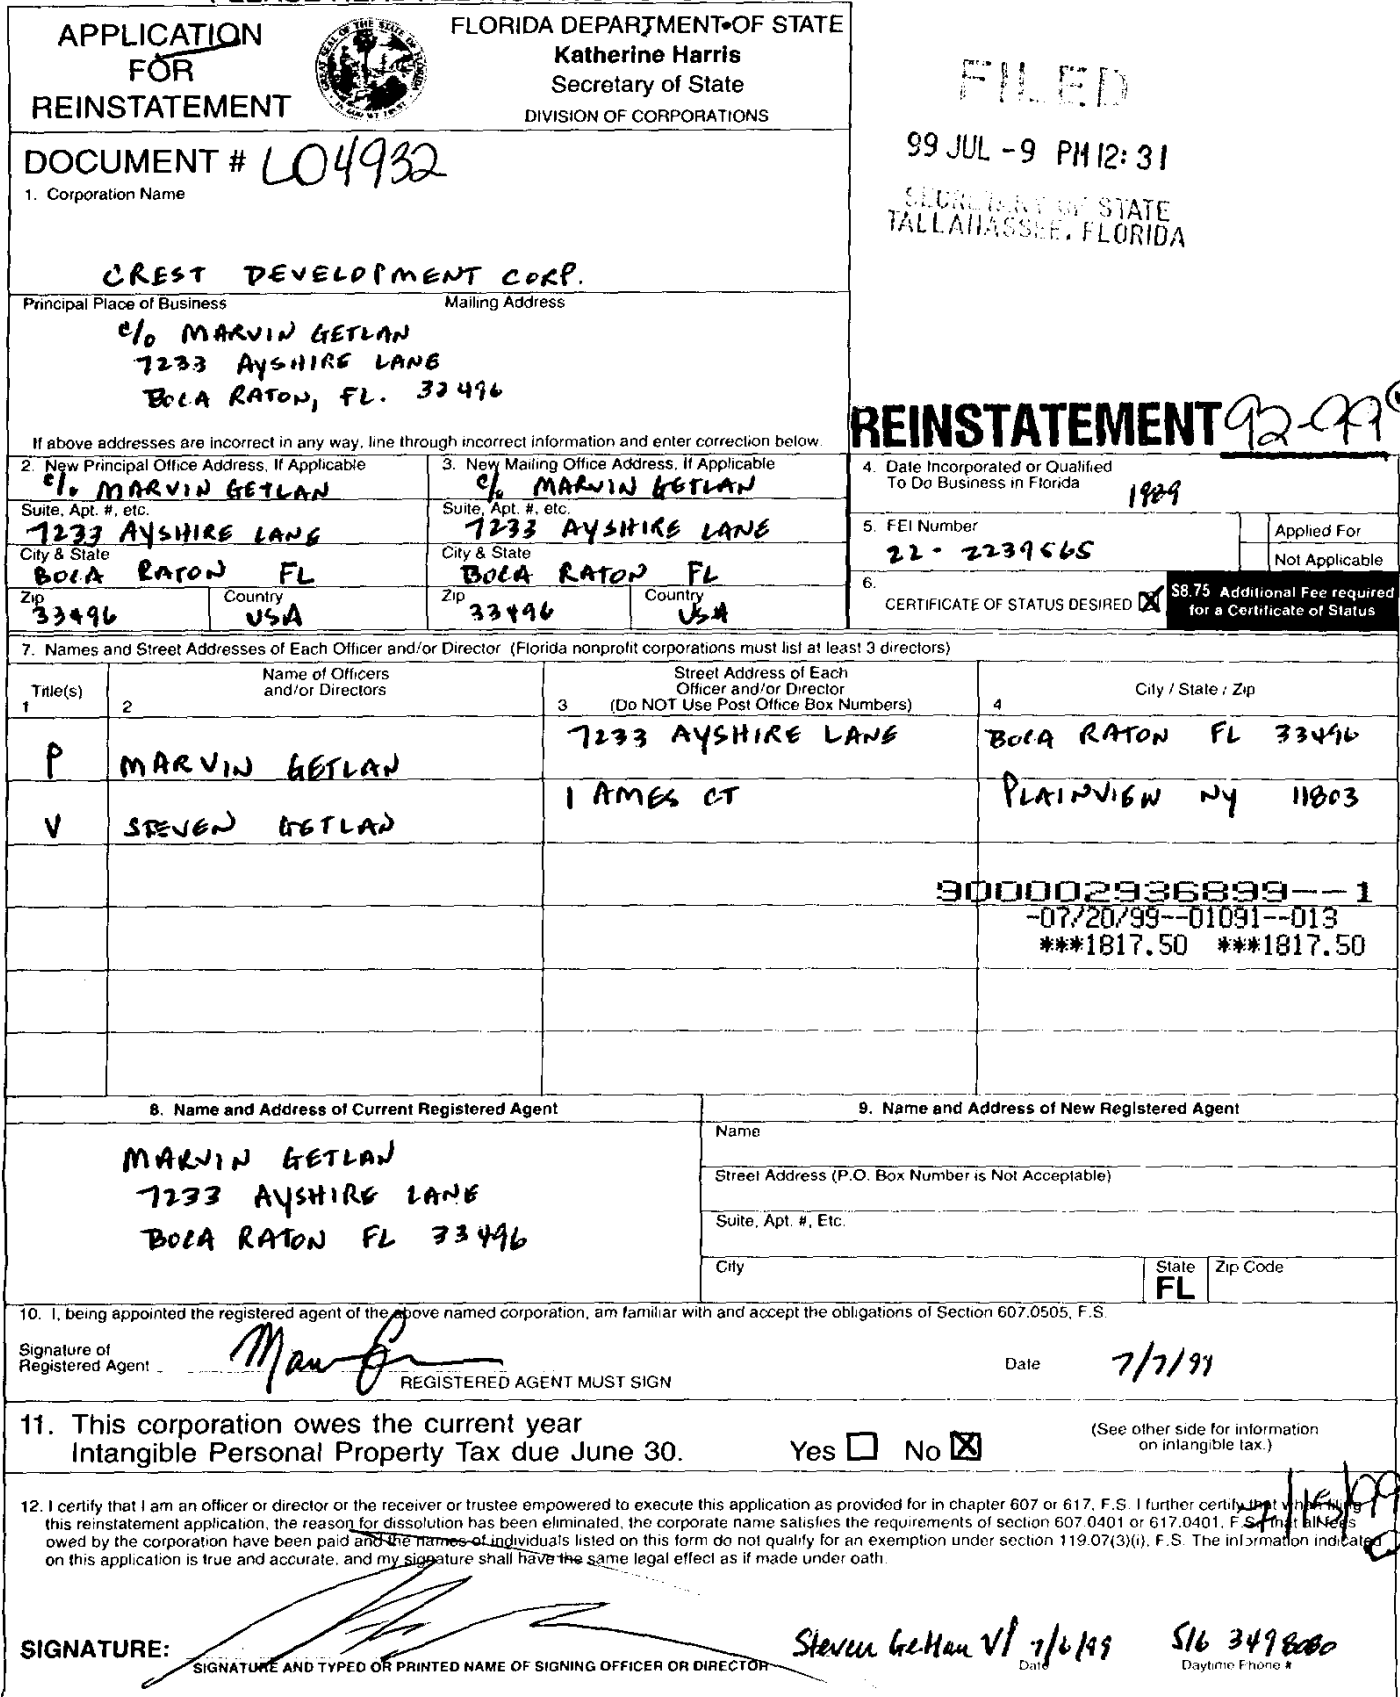 APPLICATION
FOR
REINSTATEMENT
FLORIDA DEPARTMENT OF STATE
Katherine Harris
Secretary of State
DIVISION OF CORPORATIONS
FILED
99 JUL -9 PM 12: 31
SECRETARY OF STATE
TALLAHASSEE, FLORIDA
DOCUMENT # L04932
1. Corporation Name
CREST DEVELOPMENT CORP.
Principal Place of Business Mailing Address
c/o MARVIN GETLAN
7233 AYSHIRE LANE
BOCA RATON, FL. 33496
If above addresses are incorrect in any way, line through incorrect information and enter correction below.
REINSTATEMENT 92-99
2. New Principal Office Address, If Applicable
c/o MARVIN GETLAN
Suite, Apt. #, etc.
7233 AYSHIRE LANE
City & State
BOCA RATON FL
Zip Country
33496 USA
3. New Mailing Office Address, If Applicable
c/o MARVIN GETLAN
Suite, Apt. #, etc.
7233 AYSHIRE LANE
City & State
BOCA RATON FL
Zip Country
33496 USA
4. Date Incorporated or Qualified
To Do Business in Florida 1989
5. FEI Number
22-2239565
Applied For
Not Applicable
6.
CERTIFICATE OF STATUS DESIRED X
$8.75 Additional Fee required
for a Certificate of Status
7. Names and Street Addresses of Each Officer and/or Director (Florida nonprofit corporations must list at least 3 directors)
Title(s)
1
Name of Officers
and/or Directors
2
Street Address of Each
Officer and/or Director
3 (Do NOT Use Post Office Box Numbers)
City / State / Zip
4
P MARVIN GETLAN 7233 AYSHIRE LANE BOCA RATON FL 33496
V STEVEN GETLAN 1 AMES CT PLAINVIEW NY 11803
900002936899--1
-07/20/99--01091--013
***1817.50 ***1817.50
8. Name and Address of Current Registered Agent
MARVIN GETLAN
7233 AYSHIRE LANE
BOCA RATON FL 33496
9. Name and Address of New Registered Agent
Name
Street Address (P.O. Box Number is Not Acceptable)
Suite, Apt. #, Etc.
City State Zip Code
FL
10. I, being appointed the registered agent of the above named corporation, am familiar with and accept the obligations of Section 607.0505, F.S.
Signature of
Registered Agent
REGISTERED AGENT MUST SIGN
Date 7/7/99
11. This corporation owes the current year
Intangible Personal Property Tax due June 30. Yes No X
(See other side for information
on intangible tax.)
7/15/99
12. I certify that I am an officer or director or the receiver or trustee empowered to execute this application as provided for in chapter 607 or 617, F.S. I further certify that when filing
this reinstatement application, the reason for dissolution has been eliminated, the corporate name satisfies the requirements of section 607.0401 or 617.0401, F.S., that all fees
owed by the corporation have been paid and the names of individuals listed on this form do not qualify for an exemption under section 119.07(3)(i), F.S. The information indicated
on this application is true and accurate, and my signature shall have the same legal effect as if made under oath.
SIGNATURE: Steven Getlan VP 7/6/99 516 3498080
SIGNATURE AND TYPED OR PRINTED NAME OF SIGNING OFFICER OR DIRECTOR Date Daytime Phone #